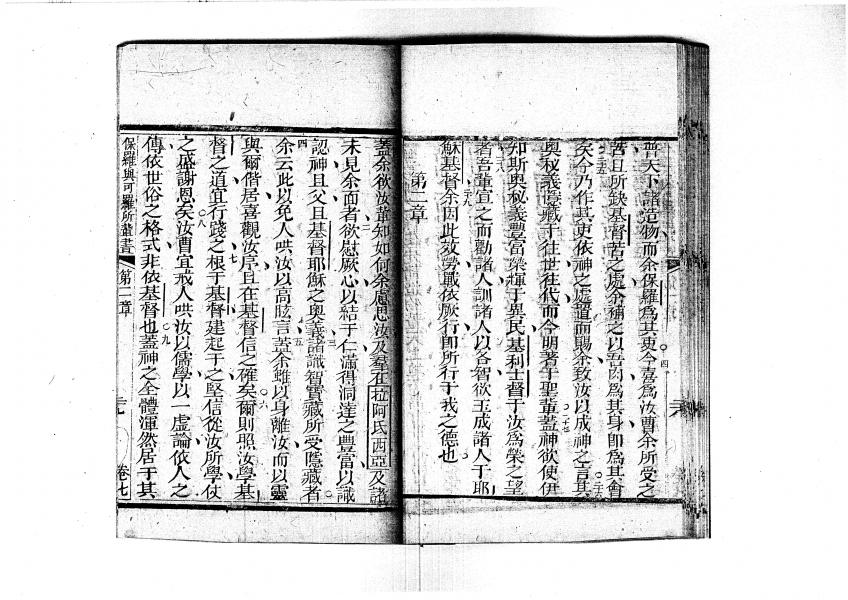 普天下諸造物而余保羅爲其吏今喜爲汝曹余所受之
苦且所缺基督苦之處余補之以吾肉爲其身卽爲其會
矣今乃作其吏依神之處置而賜余致汝以成神之言其
奧秘義隱藏于往世往代而今明著于聖輩蓋神欲使伊
知斯奧秘義豐富榮輝于異民基利士督于汝爲榮之望
者吾輩宣之而勸諸人訓諸人以各智欲玉成諸人于耶
穌基督余因此效勞戰依厥行卽所行于我之德也
第二章
蓋余欲汝輩知如何余慮思汝及羣在拉阿氐西亞及諸
未見余面者欲慰厥心以結于仁滿得洞達之豐富以識
認神且父且基督耶穌之奧義諸識智寶藏所受隱藏者
余云此以免人哄汝以高眩言蓋余雖以身離汝而以靈
與爾偕居喜觀汝序且在基督信之確矣爾則照汝學基
督之道宜行踐之根于基督建起于之堅信從汝所學仗
之盛謝恩矣汝曹宜戒人哄汝以儒學以一虛論依人之
傳依世俗之格式非依基督也蓋神之全體渾然居于其
保羅與可羅所輩書 第二章 卷七